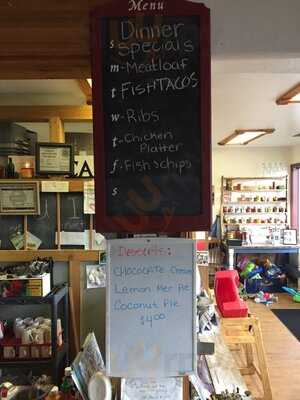 Menu
Dinner
s Specials
m - Meatloaf
t FishTACOS
w - Ribs
t - Chicken
Platter
f - Fish & chips
s
Desserts:
CHOCOLATE Cream
Lemon Mer Pie
Coconut Pie
$4.00